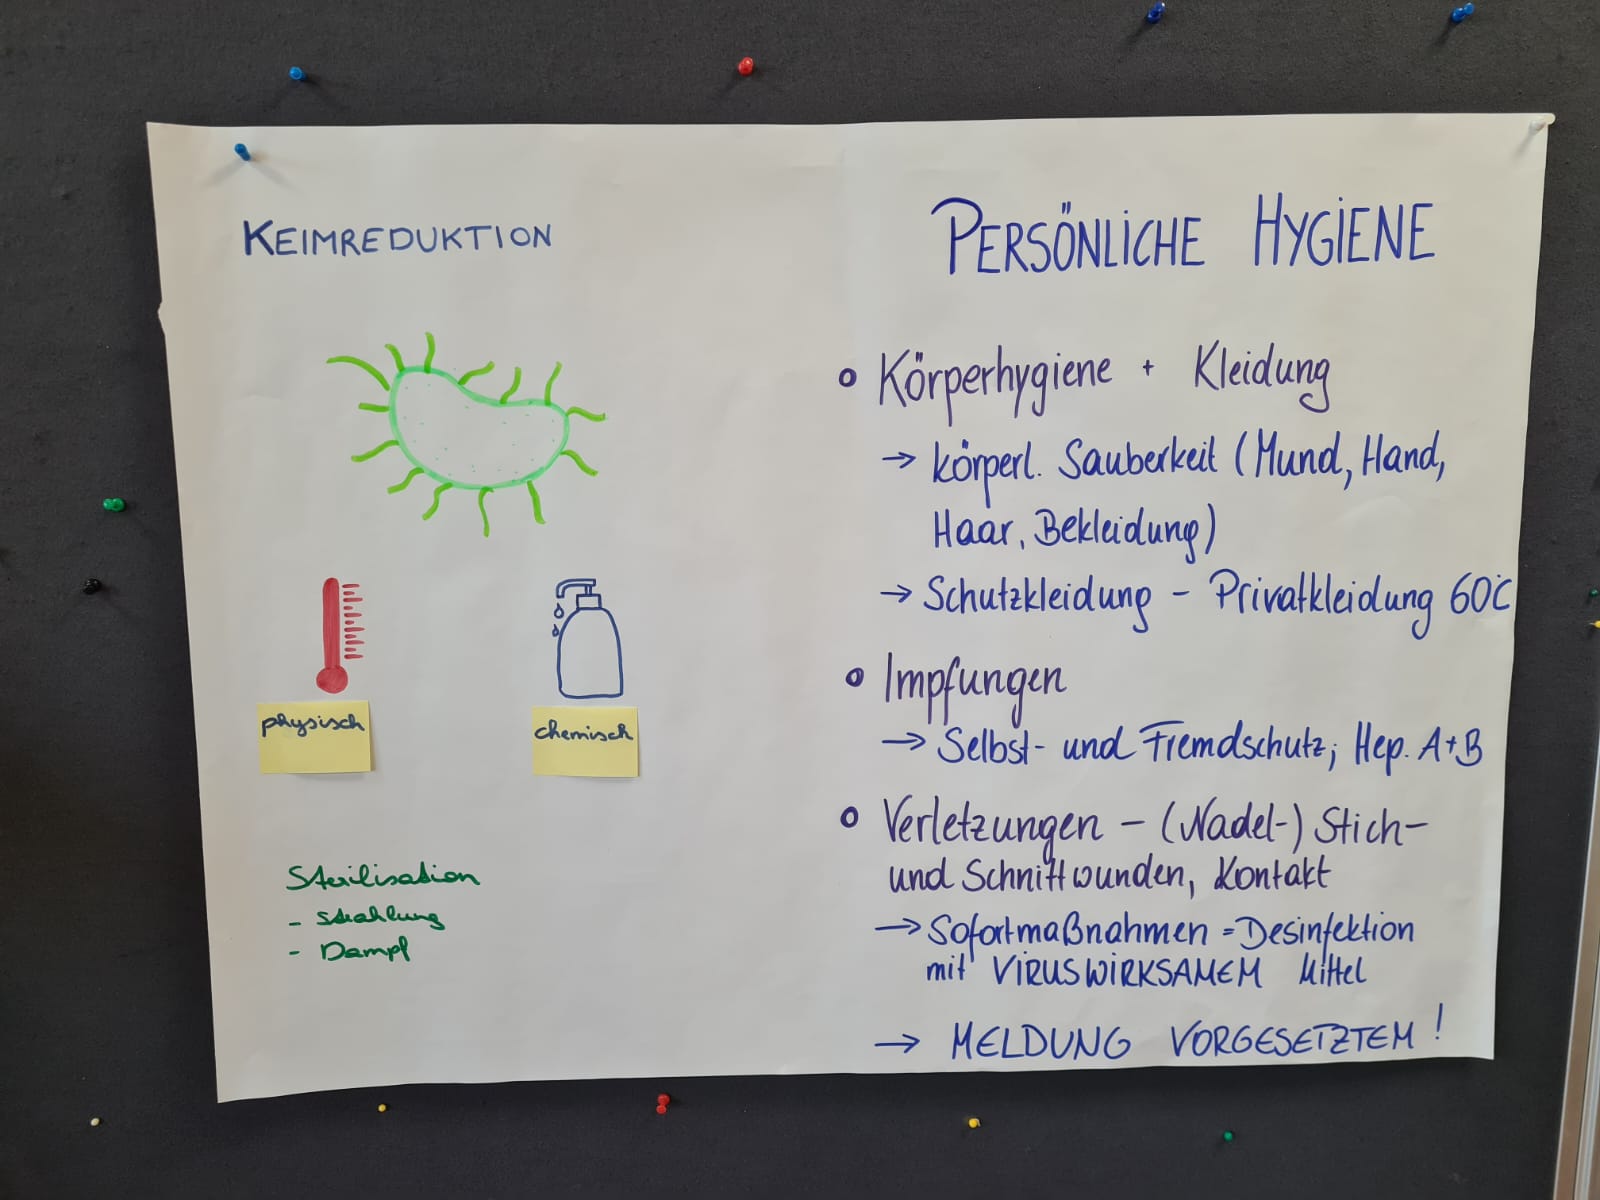 KEIMREDUKTION
physisch
chemisch
Sterilisation
- Strahlung
- Dampf
PERSÖNLICHE HYGIENE
Körperhygiene + Kleidung
→ körperl. Sauberkeit (Mund, Hand,
Haar, Bekleidung)
→ Schutzkleidung - Privatkleidung 60°C
Impfungen
→ Selbst- und Fremdschutz; Hep. A+B
Verletzungen - (Nadel-) Stich-
und Schnittwunden, Kontakt
→ Sofortmaßnahmen = Desinfektion
mit VIRUSWIRKSAMEM Mittel
→ MELDUNG VORGESETZTEM!